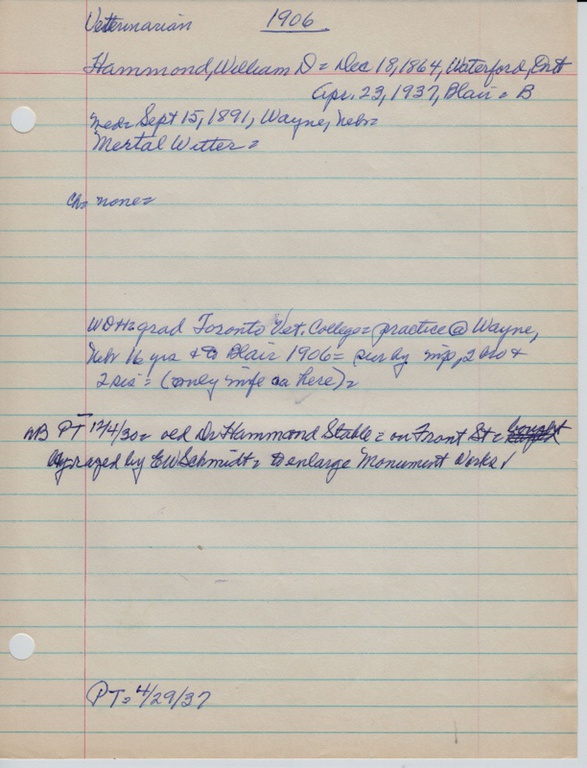 Veterinarian 1906
Hammond, William D = Dec 18, 1864, Waterford, Ont
Apr. 23, 1937, Blair = B
med = Sept 15, 1891, Wayne, Nebr =
Mertal Witter =
ch = none =
WDH = grad Toronto Vet. College = practice @ Wayne,
Nebr 16 yrs & to Blair 1906 = sur by wife, 2 bro &
2 sis = (only wife a here) =
NB PT 12/4/30 = old Dr Hammond Stable = on Front St = bought
razed by EW Schmidt = to enlarge Monument Works
PT = 4/29/37